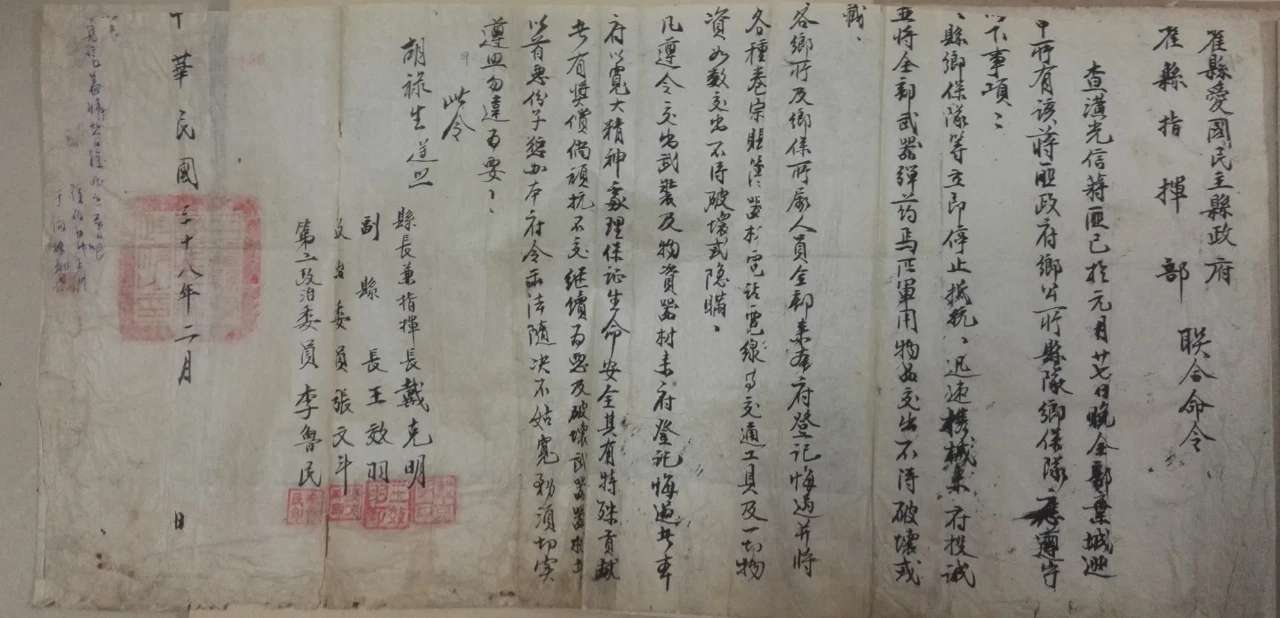 淮縣愛國民主縣政府
淮縣指揮部
联合命令
查潢光信蔣匪已於元月廿七日晚全部棄城逃
中所有該蔣匪政府鄉公所縣隊鄉保隊應遵守
以下事項：
縣鄉保隊等立即停止抵抗、迅速携械來府投誠
並將全部武器彈葯馬匹軍用物品交出不得破壞或
各鄉所及鄉保所屬人員全部來本府登記悔过并將
各種卷宗賬簿器材電話電線等交通工具及一切物
資如数交出不得破壞或隐瞞、
凡遵令交出武裝及物資器材來府登記悔過者本
府以寬大精神處理保証生命安全其有特殊貢献
者有奬償倘頑抗不交継續為惡及破壞武器器材
以首惡份子懲如本府令示法隨决不姑寬務須切实
遵照勿違為要、
此令
胡禄生遵照
縣長兼指揮長戴克明
副縣長王效羽
委員張文斗
第二政治委員李魯民
中華民國三十八年二月 日